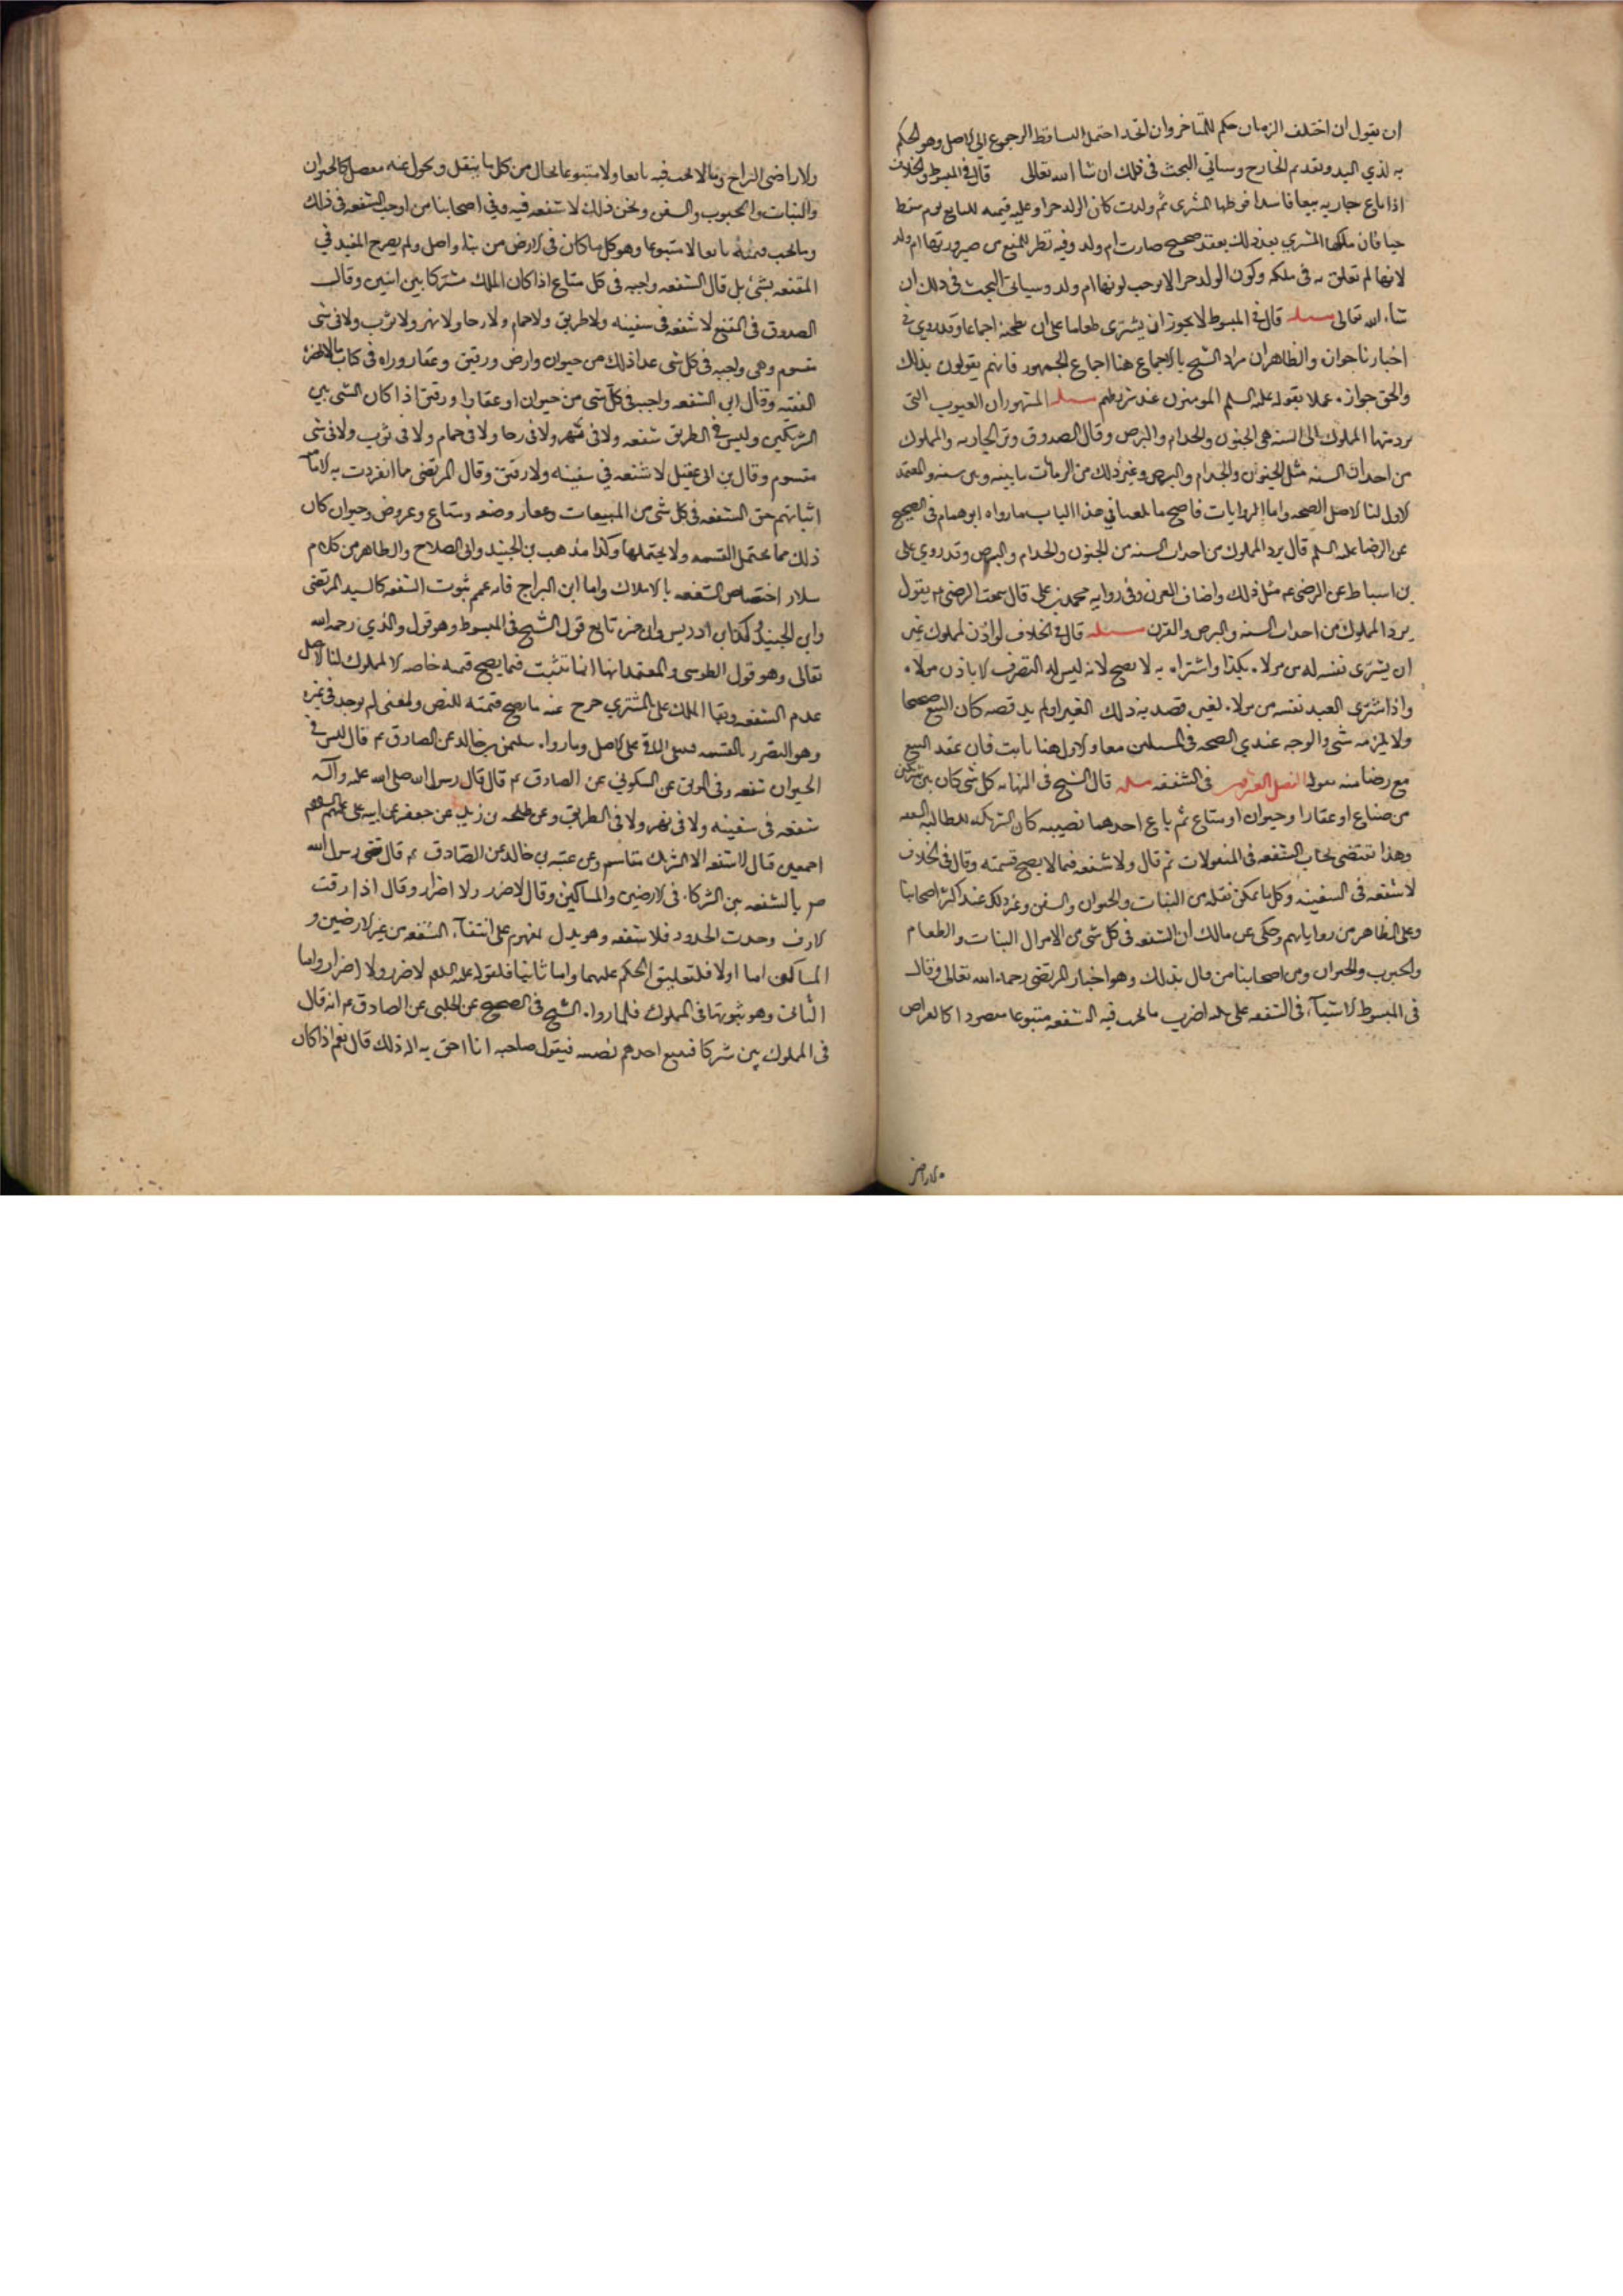 ان يقول ان اختلف الزمان حكم للمتاخر وان اتحد احتمل التساقط الرجوع الى الاصل وهو الحكم
به لذي اليد وتقديم الخارج وسياتي البحث في ذلك ان شا الله تعالى قال في المبسوط والخلاف
اذا باع جاريه بيعا فاسدا فوطيها المشترى ثم ولدت كان الولد حرا وعليه قيمته للبايع يوم سقط
حيا فان ملكها المشتري بعد ذلك بعقد صحيح صارت ام ولد وفيه نظر للمنع من صيرورتها ام ولد
لانها لم تعلق به في ملكه وكون الولد حرا لا يوجب كونها ام ولد وسياتي البحث في ذلك ان
شاء الله تعالى مسله قال في المبسوط لا يجوز ان يشترى طعاما على ان يطحنه اجماعا وقد روي في
اخبارنا جوازه والظاهر ان مراد الشيخ بالاجماع هنا اجماع الجمهور فانهم يقولون بذلك
والحق جوازه عملا بقوله عليه السلم المومنون عند شروطهم مسله المشهور ان العيوب التى
يرد منها المملوك الى السنه هي الجنون والجذام والبرص وقال الصدوق وترد الجاريه والمملوك
من احداث السنه مثل الجنون والجذام والبرص وغير ذلك من الزمانات ما بينه وبين سنه والمعتمد
الاول لنا الاصل الصحه واما الروايات فاصح ما بلغنا في هذا الباب ما رواه ابو همام في الصحيح
عن الرضا عليه السلم قال يرد المملوك من احداث السنه من الجنون والجذام والبرص وقد روي على
بن اسباط عن الرضى ع مثل ذلك واضاف القرن وفي روايه محمد بن على قال سمعت الرضى ع يقول
يرد المملوك من احداث السنه والبرص والقرن مسله قال في الخلاف لو اذن لمملوك غيره
ان يشترى نفسه له من مولاه بكذا واشتراه به لا يصح لانه ليس له التصرف الا باذن مولاه
واذا اشترى العبد نفسه من مولاه لغيره فصدقه ذلك الغير او لم يصدقه كان البيع صحيحا
ولا يلزمه شى والوجه عندي الصحه في المسلتين معا والاول هنا ثابت فان عقد البيع
مع رضا منه بمولاه الفصل العشرون في الشفعه مسله قال الشيخ في النهايه كل شى كان بين شريكين
من ضياع او عقار او حيوان او متاع ثم باع احدهما نصيبه كان لشريكه المطالبه بالشفعه
وهذا يقتضى ايجاب الشفعه في المنقولات ثم قال ولا شفعه فيما لا يصح قسمته وقال في الخلاف
لا شفعه في السفينه وكل ما يمكن نقله من الثياب والحيوان والسفن وغير ذلك عند اكثر اصحابنا
وعلى الظاهر من رواياتهم وحكى عن مالك ان الشفعه في كل شى من الاموال الثياب والطعام
والحبوب والحيوان ومن اصحابنا من قال بذلك وهو اختيار المرتضى رحمه الله تعالى وقال
في المبسوط الاشيآء في الشفعه على ثلثه اضرب ما يجب فيه الشفعه متبوعا مقصودا كالعراص
والاراضي
والاراضى البراح وما لا يجب فيه تابعا ولا متبوعا بحال من كل ما ينقل ويحول عنه منفصل كالحيوان
والثياب والحبوب والسفن ونحو ذلك لا شفعه فيه وفي اصحابنا من اوجب الشفعه في ذلك
وما يجب فيه تابعا لا متبوعا وهو كل ما كان في الارض من بناء واصل ولم يصرح المفيد في
المقنعه بشئ بل قال الشفعه واجبه في كل متاع اذا كان الملك مشتركا بين اثنين وقال
الصدوق في المقنع لا شفعه في سفينه ولا طريق ولا حمام ولا رحا ولا نهر ولا ثوب ولا في شى
مقسوم وهي واجبه في كل شى عدا ذلك من حيوان وارض ورقيق وعقار ورواه في كتاب من لا يحضره
الفقيه وقال ابي الشفعه واجبه في كل شى من حيوان او عقار او رقيق اذا كان الشى بين
الشريكين وليس في الطريق شفعه ولا في نهر ولا في رحا ولا في حمام ولا في ثوب ولا في شى
مقسوم وقال بن ابي عقيل لا شفعه في سفينه ولا رقيق وقال المرتضى مما انفردت به الاماميه
اثباتهم حق الشفعه في كل شى من المبيعات وعقار وضيعه ومتاع وعروض وحيوان كان
ذلك مما يحتمل القسمه ولا يحتملها وكذا مذهب بن الجنيد وابى الصلاح والظاهر من كلام
سلار اختصاص الشفعه بالاملاك واما ابن البراج فانه عمم ثبوت الشفعه كالسيد المرتضى
وابن الجنيد وكذا بن ادريس وابن حمزه تابع قول الشيخ في المبسوط وهو قول والدي رحمه الله
تعالى وهو قول الطوسى والمعتمد انها انما تثبت فيما يصح قسمه خاصه الا المملوك لنا الاصل
عدم الشفعه وبقا الملك على المشتري خرج عنه ما يصح قسمته للنص ولمعنى لم يوجد في غيره
وهو التضرر بالقسمه فيبقى الباقى على الاصل وما رواه سليمن بن خالد عن الصادق ع قال ليس في
الحيوان شفعه وفي الموثق عن السكوني عن الصادق ع قال قال رسول الله صلى الله عليه وآله
شفعه في سفينه ولا في نهر ولا في الطريق وعن طلحه بن زيد عن جعفر عن ابيه عن على عليهم السلم
اجمعين قال لا شفعه الا لشريك مقاسم وعن عقبه بن خالد عن الصادق ع قال قضى رسول الله
ص بالشفعه بين الشركاء في الارضين والمساكين وقال لا ضرر ولا اضرار وقال اذا رفت
الارف وحدت الحدود فلا شفعه وهو يدل بمفهومه على انتفآء الشفعه من غير الارضين و
المساكن اما اولا فلتعليق الحكم عليهما واما ثانيا فلقوله عليه السلم لا ضرر ولا اضرار واما
الثاني وهو ثبوتها في المملوك فلما رواه الشيخ في الصحيح عن الحلبى عن الصادق ع انه قال
في المملوك بين شركا فيبيع احدهم نصيبه فيقول صاحبه انا احق به اله ذلك قال نعم اذا كان